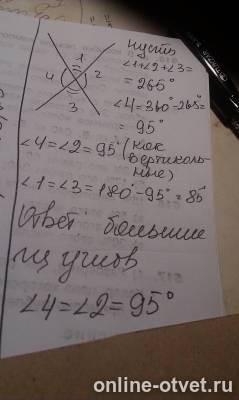 1
4 2
3
пусть
∠1+∠2+∠3=
= 265°
∠4=360°-265°=
= 95°
∠4=∠2=95° (как
вертиколь-
ные)
∠1=∠3=180°-95°=85°
Ответ больше
из углов
∠4=∠2=95°
online-otvet.ru